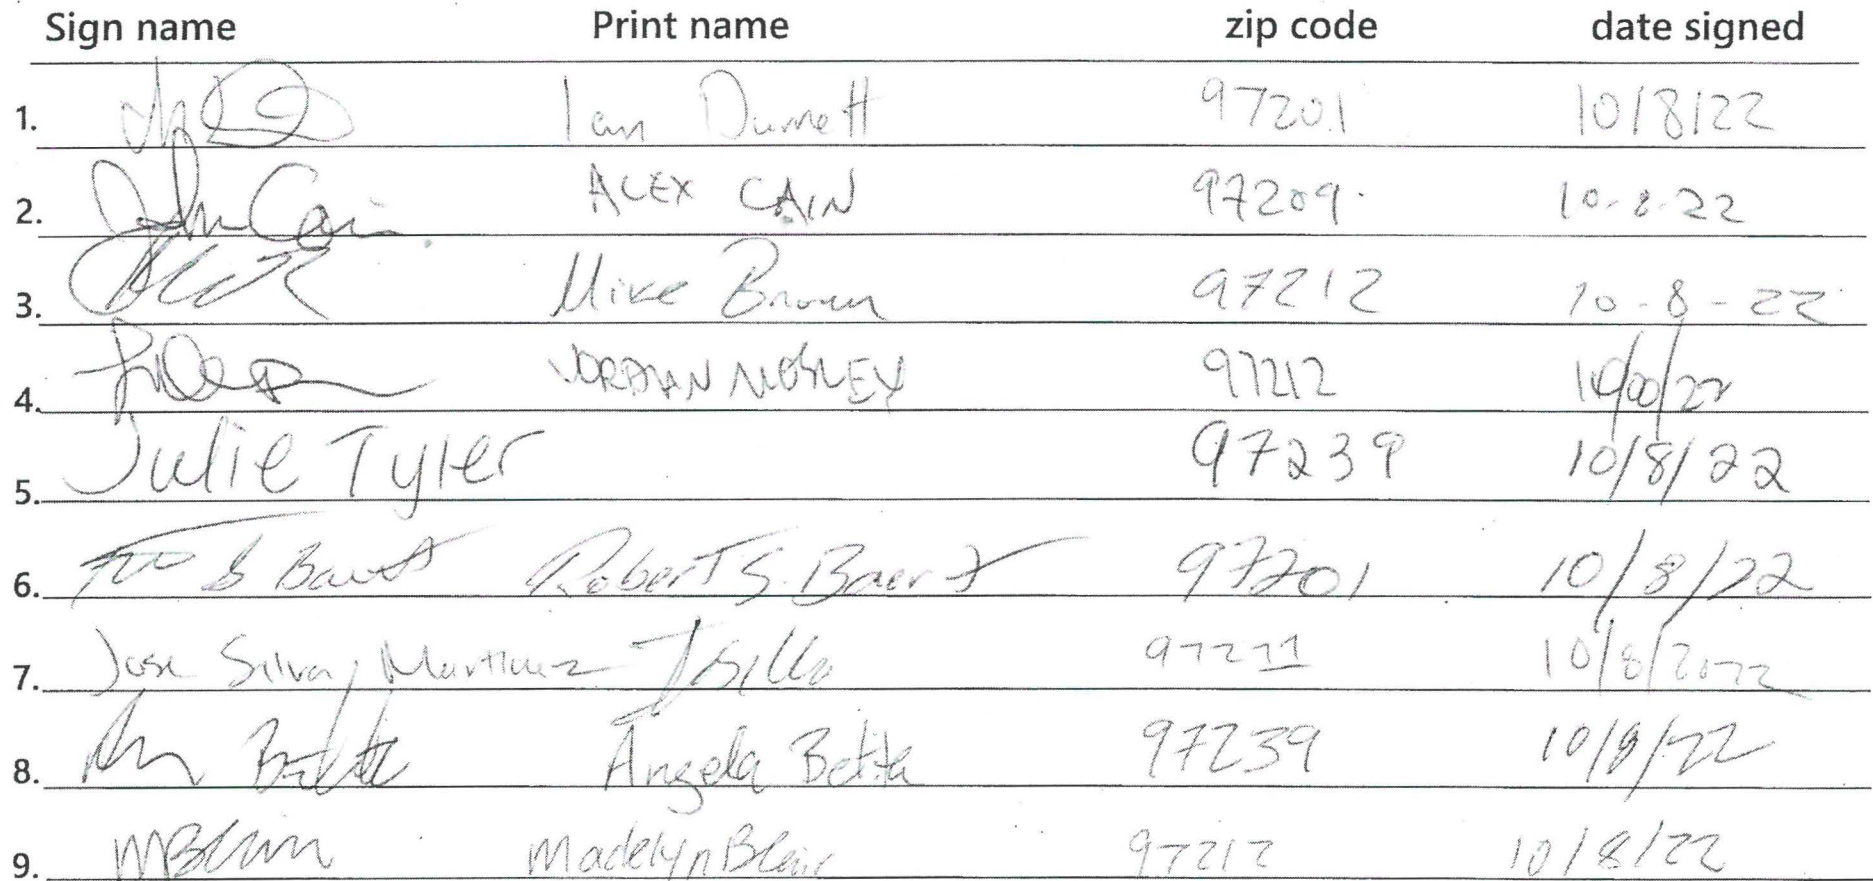 Sign name Print name zip code date signed
1. Ian Durrett 97201 10/8/22
2. John Cain ALEX CAIN 97209 10-8-22
3. Mike Brown 97212 10-8-22
4. JORDAN MOSLEY 97212
5. Julie Tyler 97239 10/8/22
6. Robert S. Baert 97201 10/8/22
7. Jose Silva, Martinez 97211 10/8/2022
8. Angela Betita 97239 10/8/22
9. MBlair Madelyn Blair 97212 10/8/22